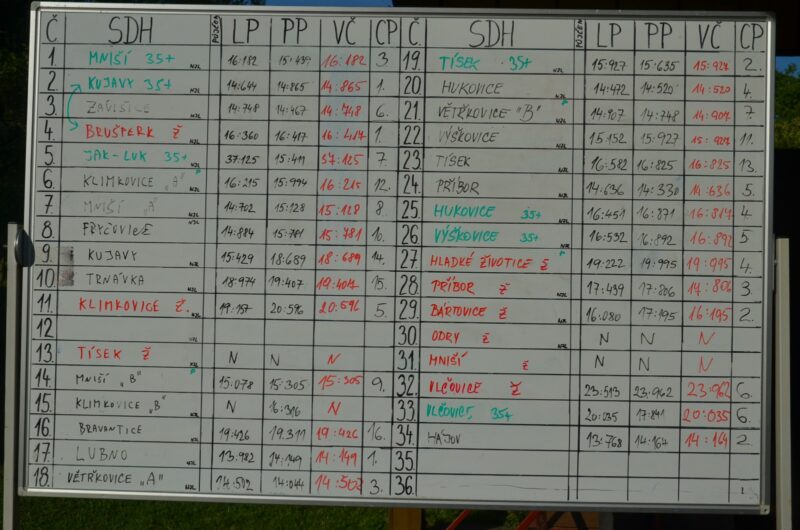 Č. SDH PŮJČEN LP PP VČ CP
1. MNIŠÍ 35+ NZL 16:182 15:439 16:182 3
2. KUJAVY 35+ 14:644 14:865 14:865 1.
3. ZÁVIŠICE NZL 14:748 14:467 14:748 6.
4. BRUŠPERK Ž NZL 16:360 16:417 16:417 1.
5. JAK-LUK 35+ NZL 37:125 15:411 37:125 7.
6. KLIMKOVICE "A" P 16:215 15:994 16:215 12.
7. MNIŠÍ "A" NZL 14:702 15:128 15:128 8.
8. FRYČOVICE NZL 14:884 15:781 15:781 10.
9. KUJAVY 15:429 18:689 18:689 14.
10. TRNÁVKA NZL 18:974 19:407 19:407 15.
11. KLIMKOVICE Ž 19:157 20:596 20:596 5.
12
13. TÍSEK Ž NZL N N N
14. MNIŠÍ "B" P 15:078 15:305 15:305 9.
15. KLIMKOVICE "B" N 16:316 N
16. BRAVANTICE NZL 19:426 19.311 19:426 16.
17. LUBNO NZL 13:982 14:149 14:149 1.
18. VĚTŘKOVICE "A" NZL 14:502 14:044 14:502 3.
Č. SDH LP PP VČ CP
19. TÍSEK 35+ NZL 15:927 15:635 15:927 2.
20. HUKOVICE 14:472 14:520 14:520 4.
21. VĚTŘKOVICE "B" P 14:907 14:748 14:907 7
22. VÝŠKOVICE 15:152 15:927 15:927 11.
23. TÍSEK 16:582 16:825 16:825 13.
24. PŘÍBOR 14:636 14:330 14:636 5.
25. HUKOVICE 35+ 16:451 16:817 4.
26. VÝŠKOVICE 35+ 16:592 16:892 16:892 5
27. HLADKÉ ŽIVOTICE Ž P 19:222 19:995 19:995 4.
28. PŘÍBOR Ž NZL 17:439 17:806 3.
29. BÁRTOVICE Ž NZL 16:080 17:195 2.
30. ODRY Ž NZL N N N
31. MNIŠÍ Ž N N N
32. VLČOVICE Ž 23:513 23:962 23:962 6.
33. VLČOVICE 35+ 20:035 17:841 20:035 6.
34. HÁJOV 13:768 14:164 14:164 2.
35.
36. 1